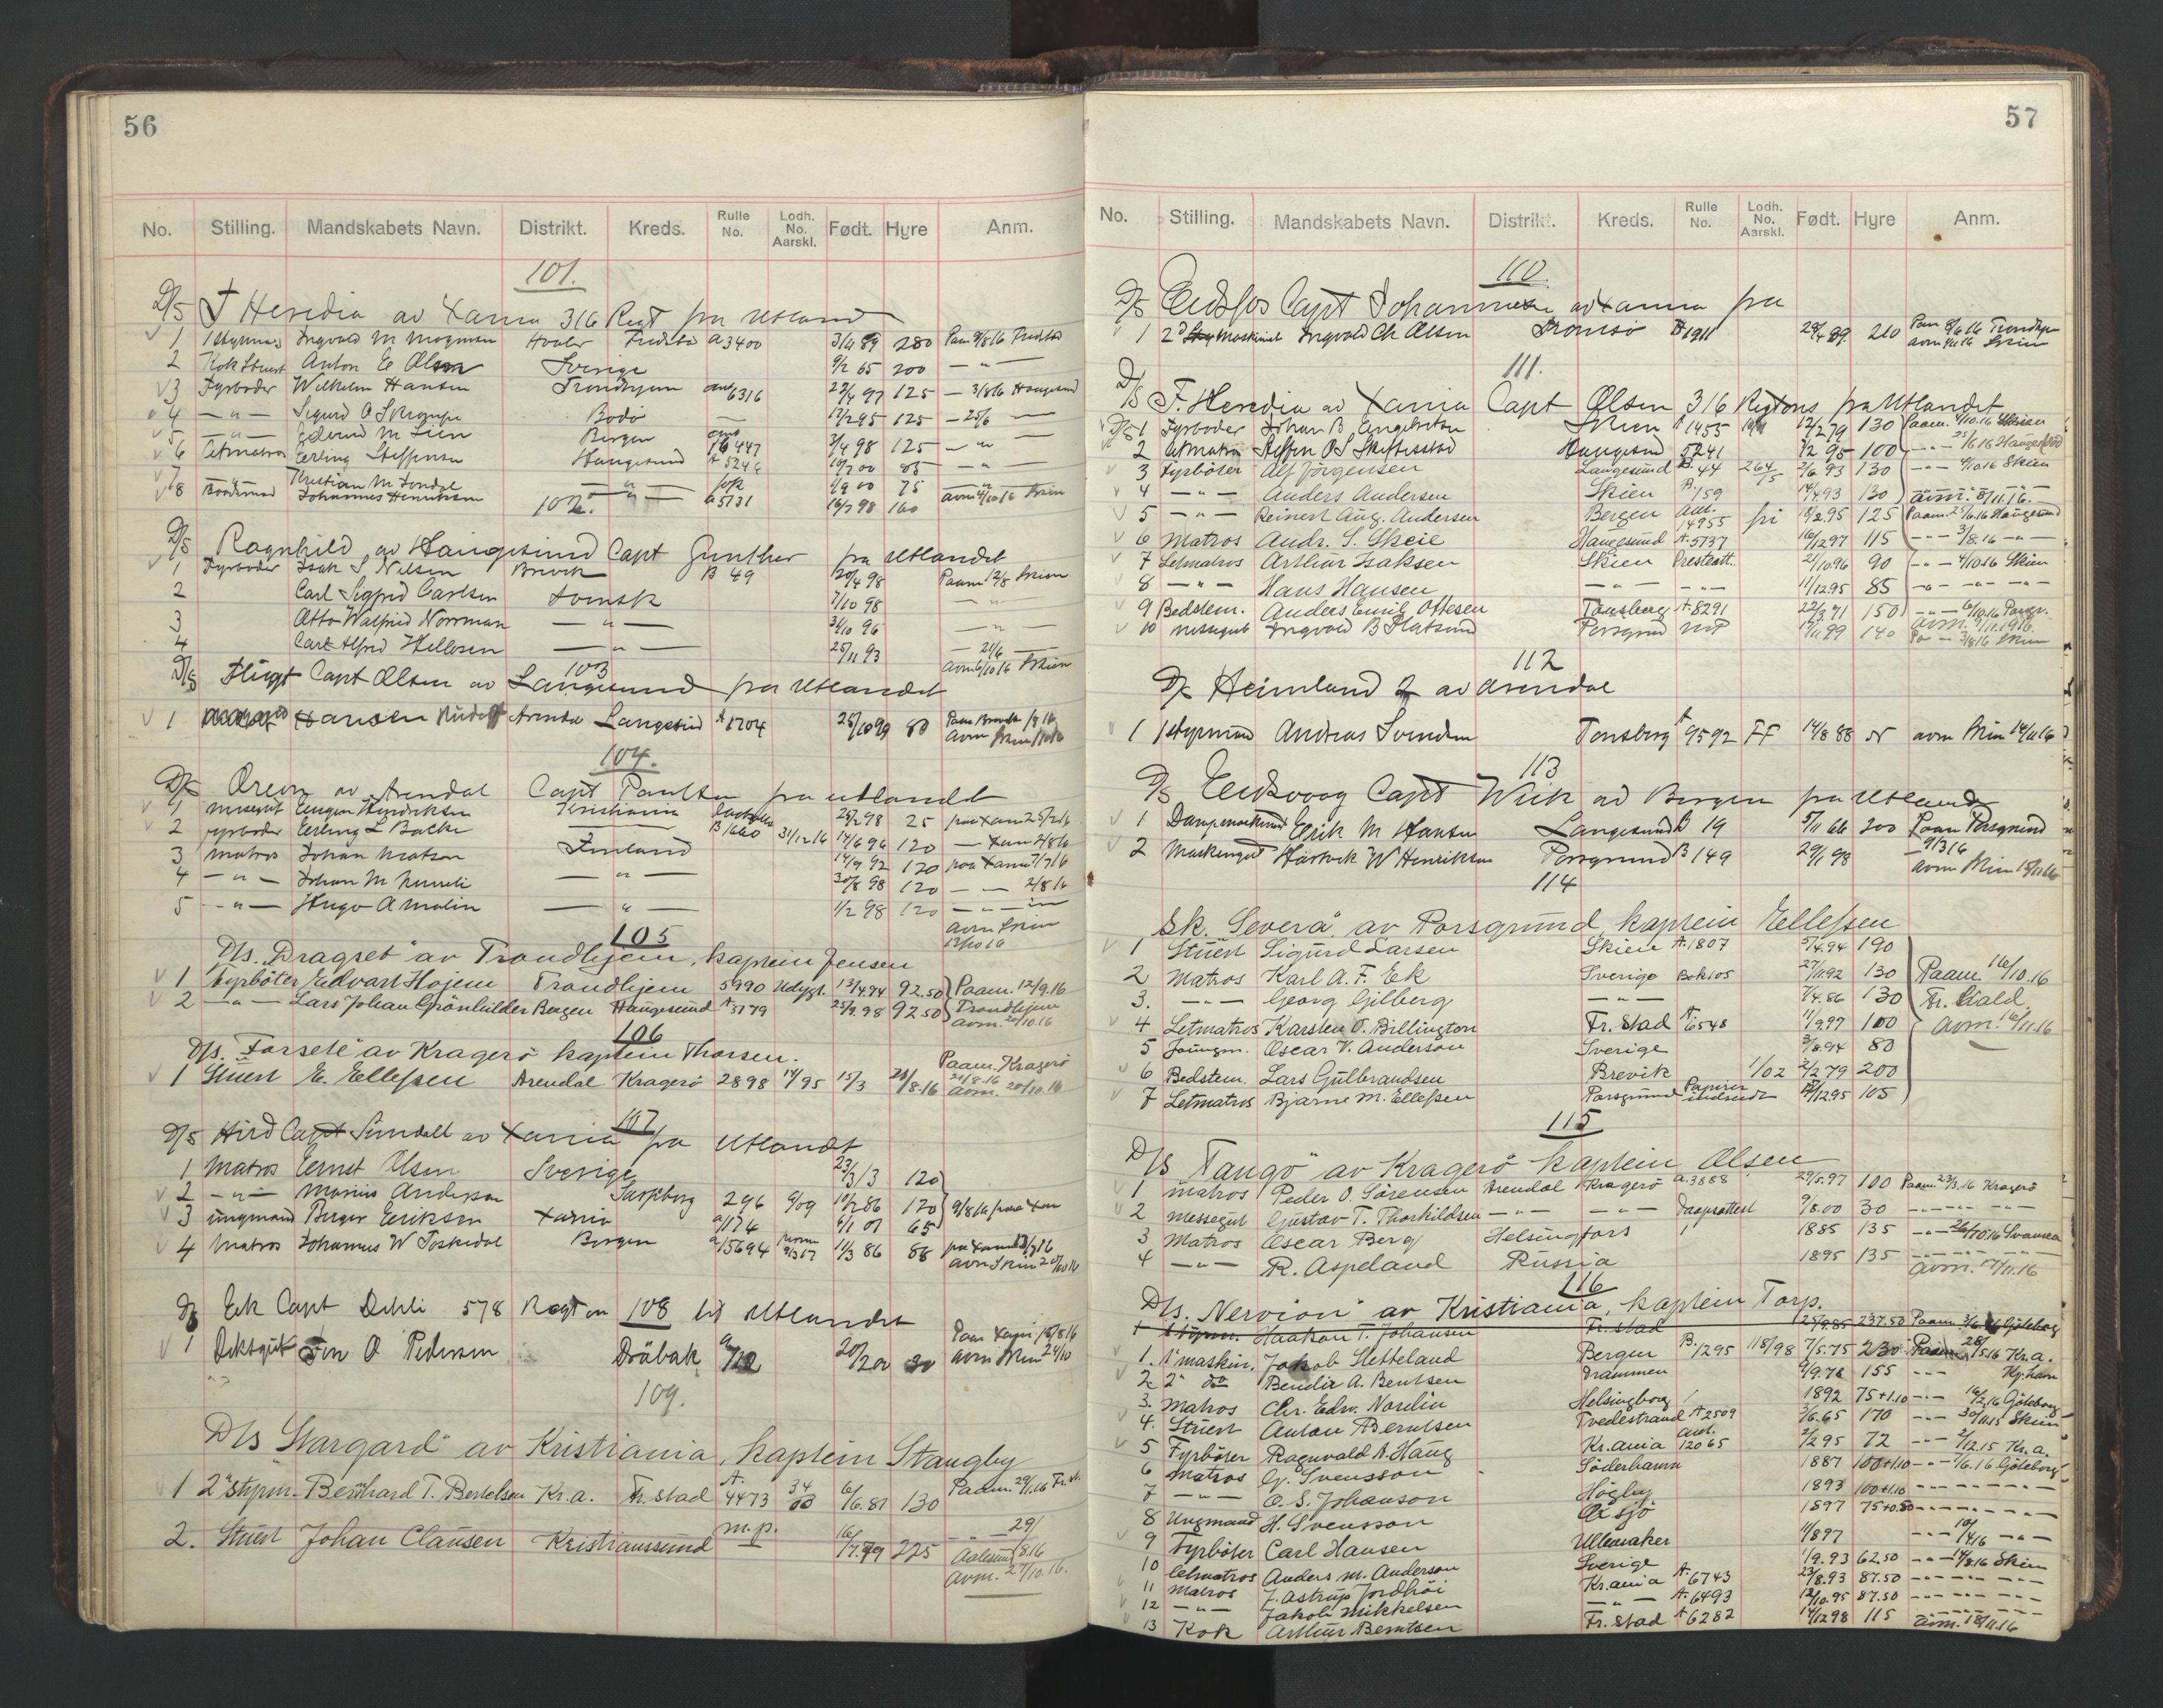 56
No. Stilling. Mandskabets Navn. Distrikt. Kreds. Rulle No. Lodh. No. Aarskl. Født. Hyre Anm.
101.
D/S F Heredia av Xania 316 Regt fra Utland
1 1styrmas Ingvald M Mogensen Hvaler Fredstad A 3400 3/11 89 280 Paam 9/8 16 Fredstad
2 Kok Stuert Anton E Olsen Sverige 9/2 65 200 — " —
3 Fyrbøder Wilhelm Hansen Trondhjem 6316 29/4 97 125 — 3/8 16 Haugesund
4 — " — Sigurd O Bodø — 13/2 95 125 — 25/6 —
5 — " — Edvind M Lien Bergen 16447 3/4 98 125 — " —
6 Letmatros Erling Steffensen Haugesund A 5246 10/7 00 85 — " —
7 — " — Kristian M — " — 1/9 00 75 — " —
8 Baadsmand Johannes Henriksen — " — A 5731 16/7 98 160 avm 4/10 16 Skien
102.
D/S Ragnhild av Haugesund Capt Gunther fra Utlandet
1 Fyrbøder Isak S Nilsen Brevik B 49 20/4 98 Paam 12/8 Skien
2 Carl Sigfrid Carlsen Svensk 7/10 98 — " —
3 Otto Walfrid Norrman — " — 3/10 96 — " —
4 Carl Alfred Hellesen — " — 25/11 93 — 21/6 —
avm 6/10 16 Skien
103
D/S Flugt Capt Olsen av Langesund fra Utlandet
1 Hansen Rudolf Arendal Langesund A 1704 25/10 99 80 Paam Brevik
avm Skien
104.
D/S Orion av Arendal Capt Paulsen fra utlandet
1 messegut Eugen Hendriksen Kristiania 25/2 98 25 paa Xania 25/7 16
2 fyrbøder Erling L Bache — B 1660 31/12 16 14/6 96 120 — Xania 2/8 16
3 matros Johan Matson Finland 14/9 92 120 paa Xania 7/7 16
4 — " — Johan M — " — 30/8 98 120 — — 2/8 16
5 — " — Hugo A Malin — " — 1/2 98 120 — " —
avm Skien
12/10 16
105
D/S. "Dragset" av Trondhjem, kaptein Jensen
1 Fyrbøter Edvart Hojem Trondhjem 5990 Udygt. 13/4.94 92.50 Paam. 12/9.16
2 — " — Lars Johan Grönhilder Bergen Haugesund A 3779 25/9.98 92.50 Trondhjem
avm. 20/10.16
106
D/S. "Forsete" av Kragerö kaptein Thorsen.
1 Stuert E. Ellefsen Arendal Kragerö 2898 14/95 15/3 21/8.16 Paam. Kragerö
21/8.16
avm. 20/10.16
107
D/S Hird Capt Sundall av Xania fra Utlandet
1 Matros Ernst Olsen Sverige 23/3/3 120
2 — " — Marius Andersson Sarpsborg 296 6/09 10/2 86 120 9/8 16 paa Xan
3 ungmand Birger Eriksen Xania A/174 6/1 01 65
4 Matros Johannes W Toskedal Bergen A/15694 11/3 86 88 paa Xania 13/7 16
avm Skien 20/10 16
108
D/S Eek Capt Dehli 578 Regt on til Utlandet
1 Deksgut Finn O Pedersen Dröbak A/12 20/2 00 30 Paa Xania 18/8 16
avm Skien 24/10
109.
D/S "Stargard" av Kristiania, kaptein Stangby
1 2den styrm. Bernhard T. Bertelsen Kr.a. Fr.stad A. 4473 34/03 6/6.81 130 Paam. 29/1.16 Fr.st.
2. Stuert Johan Clausen Kristianssund m.p. 16/7.79 225 — " — 29/8.16
Aalesund
avm. 27/10.16.
57
No. Stilling. Mandskabets Navn. Distrikt. Kreds. Rulle No. Lodh. No. Aarskl. Født. Hyre Anm.
110
D/S Eidsfos Capt Johannesen av Xania fra
1 2d Maskinist Ingvald Chr Olsen Tromsö A 1911 28/4 89. 210 Paam 8/6 16 Trondhjem
avm 4/11 16 Skien
111.
D/S F. Heredia av Xania Capt Olsen 316 Regtons fra Utlandet
1 Fyrbøder Johan B Engebretsen Skien A 1455 12/2 79 130 Paam. 4/10.16 Skien
2 Letmatros Steffen O S Skeftesstad Haugesund 5241 7/2 95 100 — " — 25/6 16 Haugesund
3 Fyrböter Alf Jörgensen Langesund B. 44 264/5 2/6 93 130 — " — 4/10 16 Skien
4 — " — Anders Andersen Skien B. 159 14/4.93 130 avm. 8/11.16.
5 — " — Reinert Aug. Andersen Bergen Ant. 14955 fri 1/2.95 125 Paam. 25/6.16 Haugesund
6 Matros Andr. S. Skeie Haugesund A. 5737 16/12 97 115 — " — 3/8.16 — " —
7 Letmatros Arthur Isaksen Skien Presteatt. 21/10 96 90 — " — 4/10 16 Skien
8 — " — Hans Hansen — " — — " — 11/12 95 85 — " — — " —
9 Bedstem. Anders Emil Ottesen Tönsberg A. 8291 22/3.71 150 — " — 6/10.16 Porsgr.
avm. 9/11.1916.
10 messegut Ingvald B Flatsund Porsgrund 17/11 99 140 Pa — 3/8 16 Skien
112
D/S Heimland 2 av Arendal
1 1styrmand Andreas Svendsen Tønsberg A 9592 FF 14/8 88 avm Skien 14/11 16
113
D/S Eekvaag Capt Wiik av Bergen fra Utlandet
1 Dampmaskinist Erik M Hansen Langesund B 19 5/11 66 200 Paam Porsgrund
2 Maskingut Hartvik W Henriksen Porsgrund B 149 29/1 98 — 9/3 16
avm Skien 15/11 16
114
Sk. "Severa" av Porsgrund, kaptein Ellefsen
1 Stuert Sigurd Larsen Skien A. 1807 5/4.94 190
2 Matros Karl A. F. Ek Sverige Bok 105 27/11.92 130 Paam. 16/10.16
3. — " — Georg Gilberg — " — 7/4.86 130 Fr. hald.
4 Letmatros Karsten O. Billington Fr.stad A 6548 11/9.97 100 avm. 16/11.16
5 Jaungm. Oscar V. Anderson Sverige 3/8.94 80
6 Bedstem. Lars Gulbrandsen Brevik 1/02 2/2 79 200
7 Letmatros Bjarne M. Ellefsen Porsgrund Papirer indsendt 18/12 95 105
115
D/S "Tango" av Kragerö kaptein Olsen
1 matros Peder O. Sörensen Arendal Kragerö A. 3888 29/5.97 100 Paam. 23/3.16 Kragerö
2 messegut Gustav T. Thorkildsen — " — — " — Daapsattest 9/8.00 30 — " — — " —
3 Matros Oscar Berg Helsingfors 1885 135 — " — 26/10.16 Swansea
4 — " — R. Aspeland Russia 1895 135 — " —
avm. 17/11.16
116
D/S. "Nervion" av Kristiania, kaptein Torp.
1 1 styrm. Haakon T. Johansen Fr.stad 25/8 85 237.50 Paam. 3/6.16 Göteborg
1. 1ste maskin. Jakob Sletteland Bergen B. 1295 118/98 7/5.75 230 Paam 28/5 16 Kr.a.
2. 2den do Bendix A. Bentsen Drammen 9/9.78 155 — " — Kj.havn
3. Matros Chr. Edv. Nordin Helsingborg 1892 75+1.10 — " — 16/2.16 Göteborg
4. Stuert Anton A Berntsen Tvedestrand A 2509 3/6.65 170 — " — 30/11 15 Skien
5 Fyrböter Ragnvald A. Haug Kr.ania Ant. 12065 2/2 95 72 — " — 2/12.15 Kr.a.
6 Matros G. Svensson Söderhamn 1887 100+1.10 — " — 1/6.16 Göteborg
7 — " — O. S. Johanson Högby 1893 100+1.10 — " — — " —
8 Ungmand H. Svensson Öxsjö 1897 75+0.80 — " — — " —
9 Fyrböter Carl Hansen Ullensaker 1/8 97 — " — 10/4 16 — " —
10 Letmatros Anders M. Anderson Sverige 1/9.93 62.50 — " — 14/8.16 Skien
11 Matros J. Astrup Jordhöi Kr.ania A. 6743 23/8.93 87.50 — " — — " —
12 — " — Jakob Mikkelsen — " — A. 6493 12/10.95 87.50 — " — — " —
13 Kok Arthur Berntsen Fr.stad A 6282 14/12 98 115 avm. 18/11.16